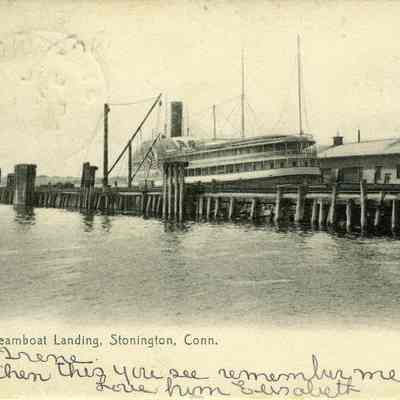 eamboat Landing, Stonington, Conn.
Irene.
hen this you see remember me
Love from Elizabeth